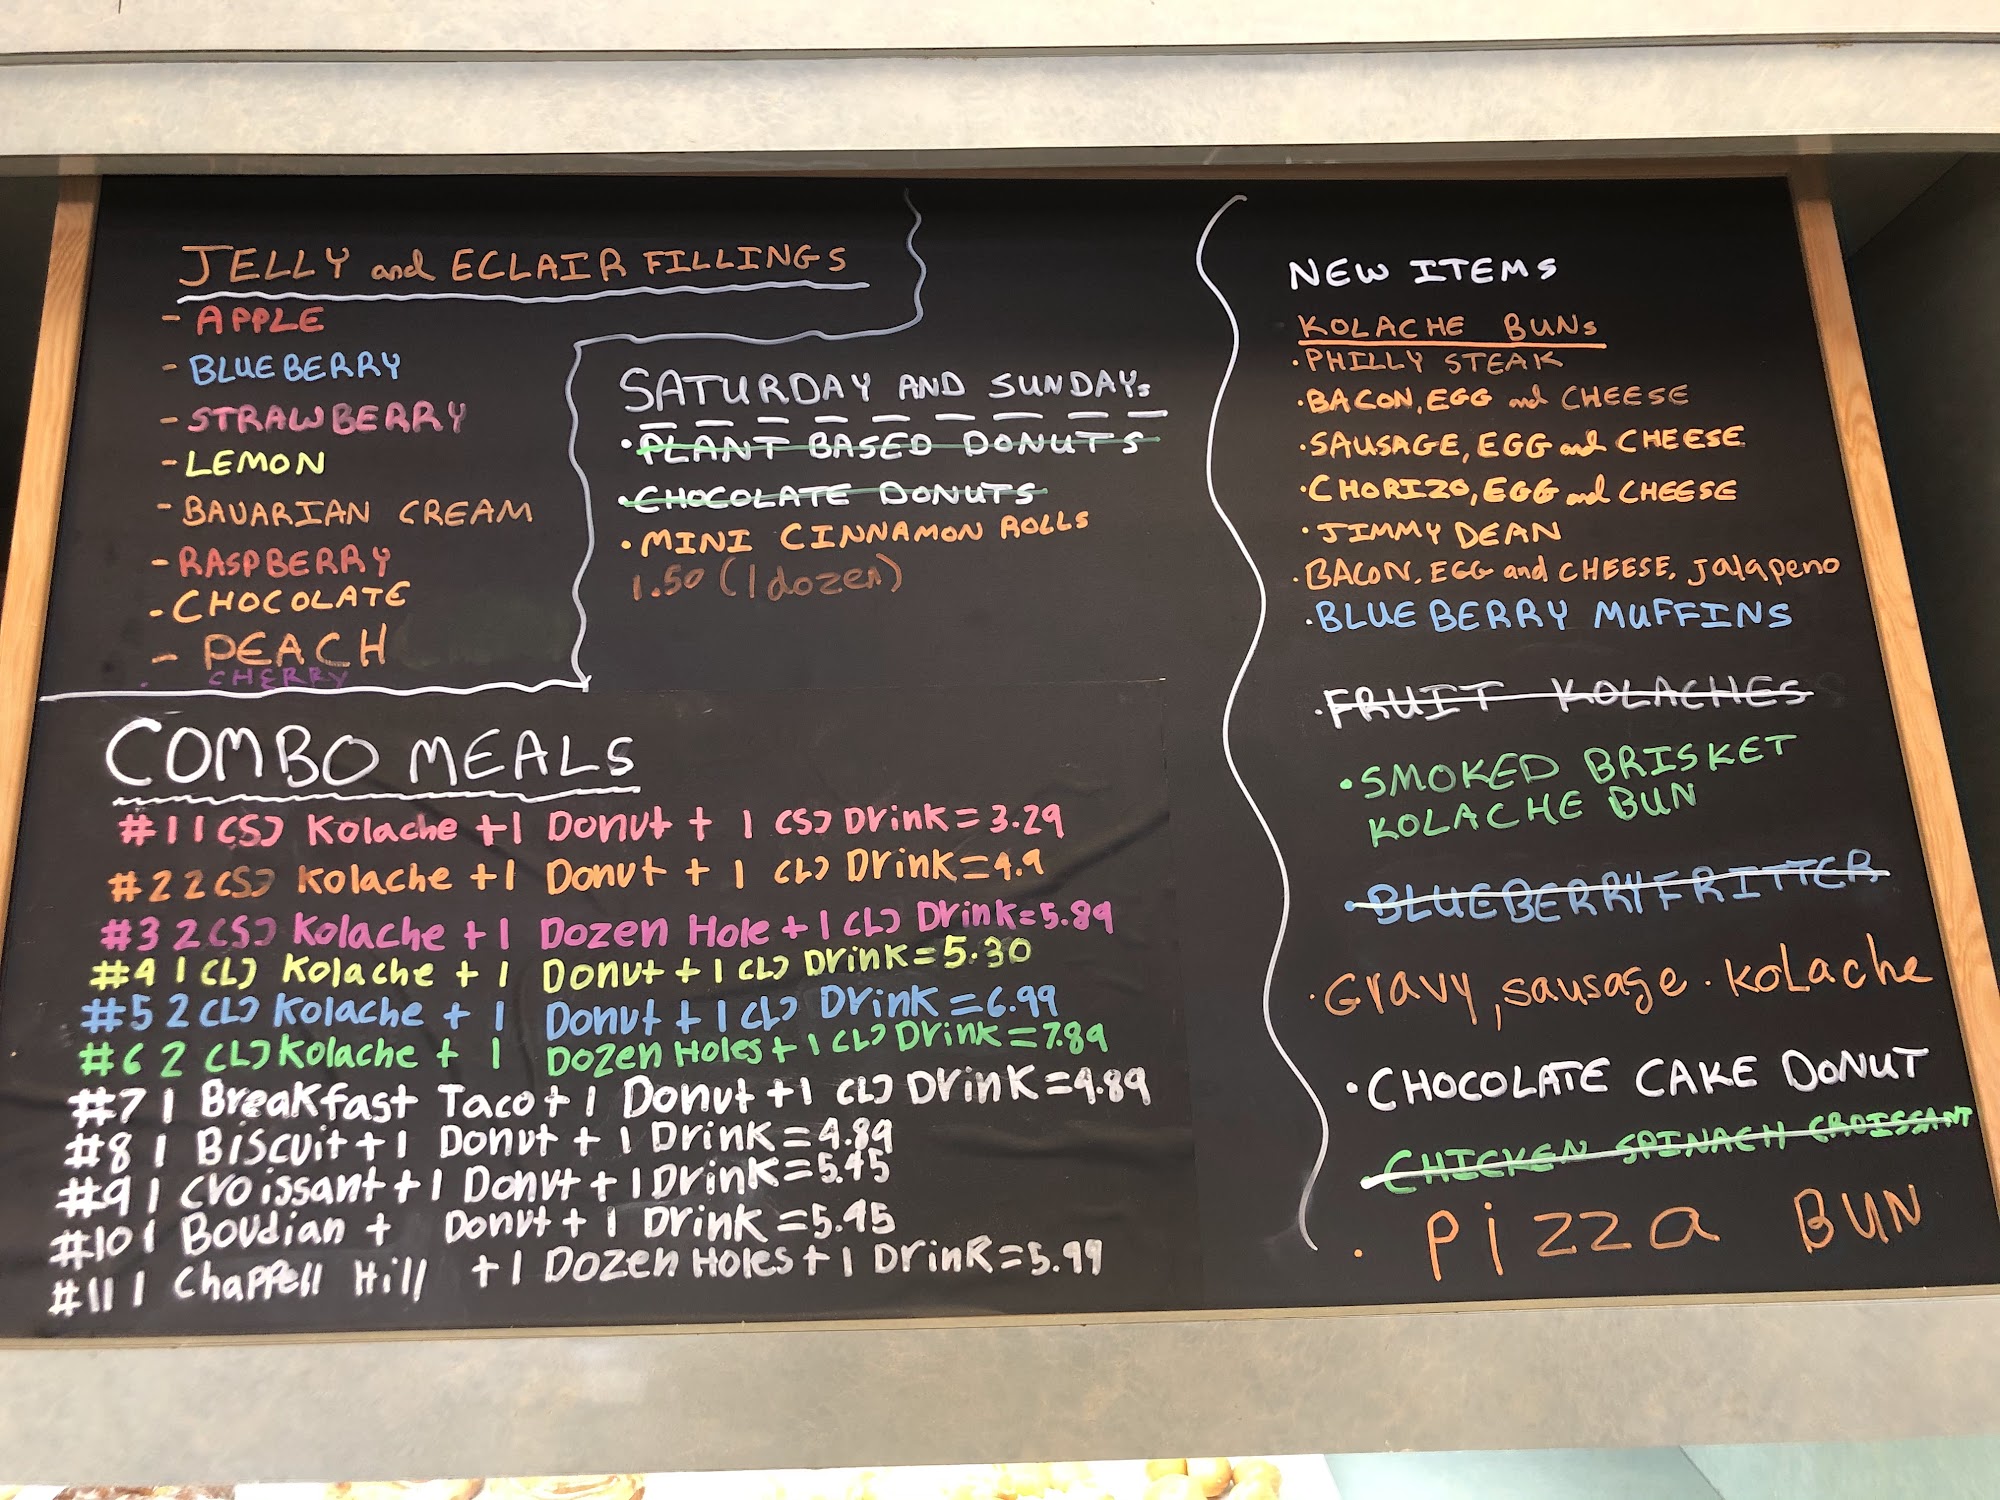 JELLY and ECLAIR FILLINGS
- APPLE
- BLUEBERRY
- STRAWBERRY
- LEMON
- BAVARIAN CREAM
- RASPBERRY
- CHOCOLATE
- PEACH
CHERRY
SATURDAY AND SUNDAYs
• PLANT BASED DONUTS
• CHOCOLATE DONUTS
• MINI CINNAMON ROLLS
1.50 (1 dozen)
COMBO MEALS
#1 1 (S) Kolache +1 Donut + 1 (S) Drink = 3.29
#2 2 (S) Kolache +1 Donut + 1 (L) Drink = 4.9
#3 2 (S) Kolache +1 Dozen Hole + 1 (L) Drink = 5.89
#4 1 (L) Kolache + 1 Donut + 1 (L) Drink = 5.30
#5 2 (L) Kolache + 1 Donut + 1 (L) Drink = 6.99
#6 2 (L) Kolache + 1 Dozen Holes + 1 (L) Drink = 7.89
#7 1 Breakfast Taco + 1 Donut + 1 (L) Drink = 4.89
#8 1 Biscuit + 1 Donut + 1 Drink = 4.89
#9 1 Croissant + 1 Donut + 1 Drink = 5.45
#10 1 Boudian + Donut + 1 Drink = 5.45
#11 1 Chappell Hill + 1 Dozen Holes + 1 Drink = 5.99
NEW ITEMS
KOLACHE BUNs
• PHILLY STEAK
• BACON, EGG and CHEESE
• SAUSAGE, EGG and CHEESE
• CHORIZO, EGG and CHEESE
• JIMMY DEAN
• BACON, EGG and CHEESE, Jalapeno
• BLUEBERRY MUFFINS
• FRUIT KOLACHES
• SMOKED BRISKET
KOLACHE BUN
• BLUEBERRY FRITTER
• Gravy, sausage . Kolache
• CHOCOLATE CAKE DONUT
• CHICKEN SPINACH CROISSANT
• Pizza BUN